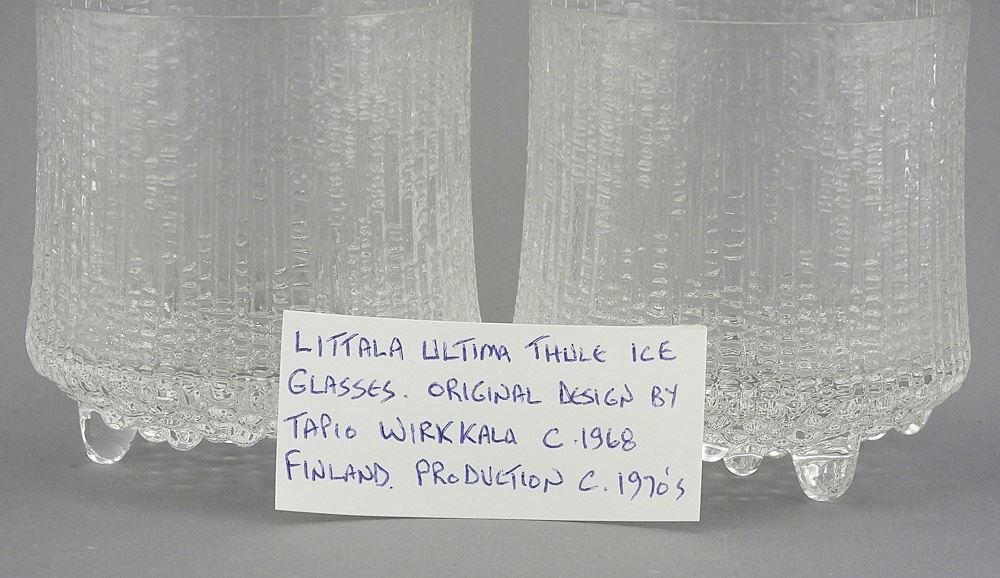 LITTALA ULTIMA THULE ICE
GLASSES. ORIGINAL DESIGN BY
TAPIO WIRKKALA C.1968
FINLAND. PRODUCTION C.1970's